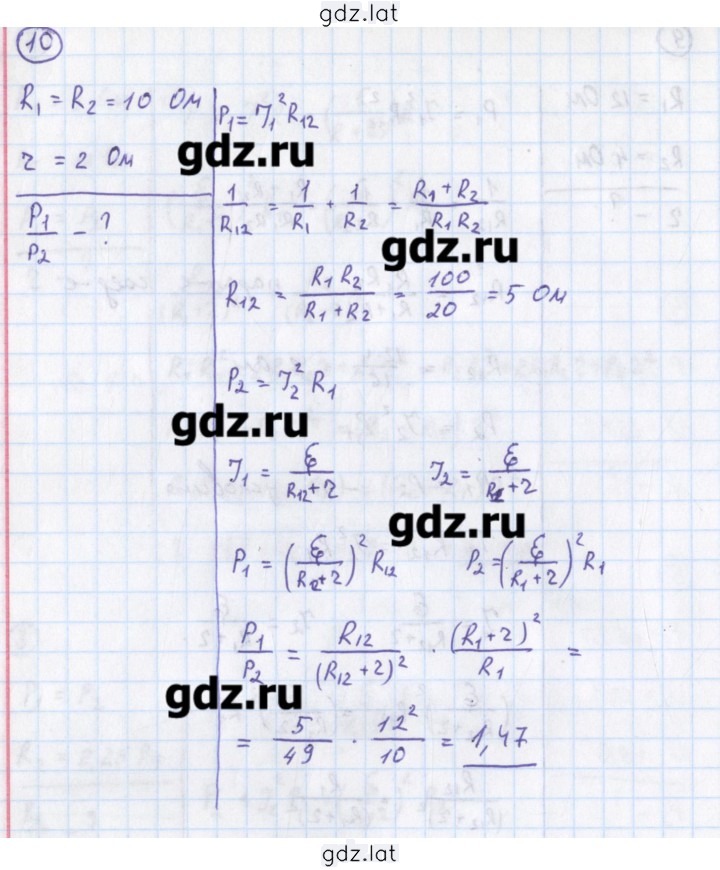 gdz.lat
10
R₁ = R₂ = 10 Ом
r = 2 Ом
P₁/P₂ - ?
P₁ = I₁² R₁₂
gdz.ru
1/R₁₂ = 1/R₁ + 1/R₂ = (R₁ + R₂)/(R₁ R₂)
gdz.ru
R₁₂ = (R₁ R₂)/(R₁ + R₂) = 100/20 = 5 Ом
P₂ = I₂² R₁
gdz.ru
I₁ = ℰ/(R₁₂ + r) I₂ = ℰ/(R₁ + r)
gdz.ru
P₁ = (ℰ/(R₁₂ + r))² R₁₂ P₂ = (ℰ/(R₁ + r))² R₁
P₁/P₂ = R₁₂/(R₁₂ + r)² · (R₁ + r)²/R₁ =
gdz.ru
= 5/49 · 12²/10 = 1,47
gdz.lat